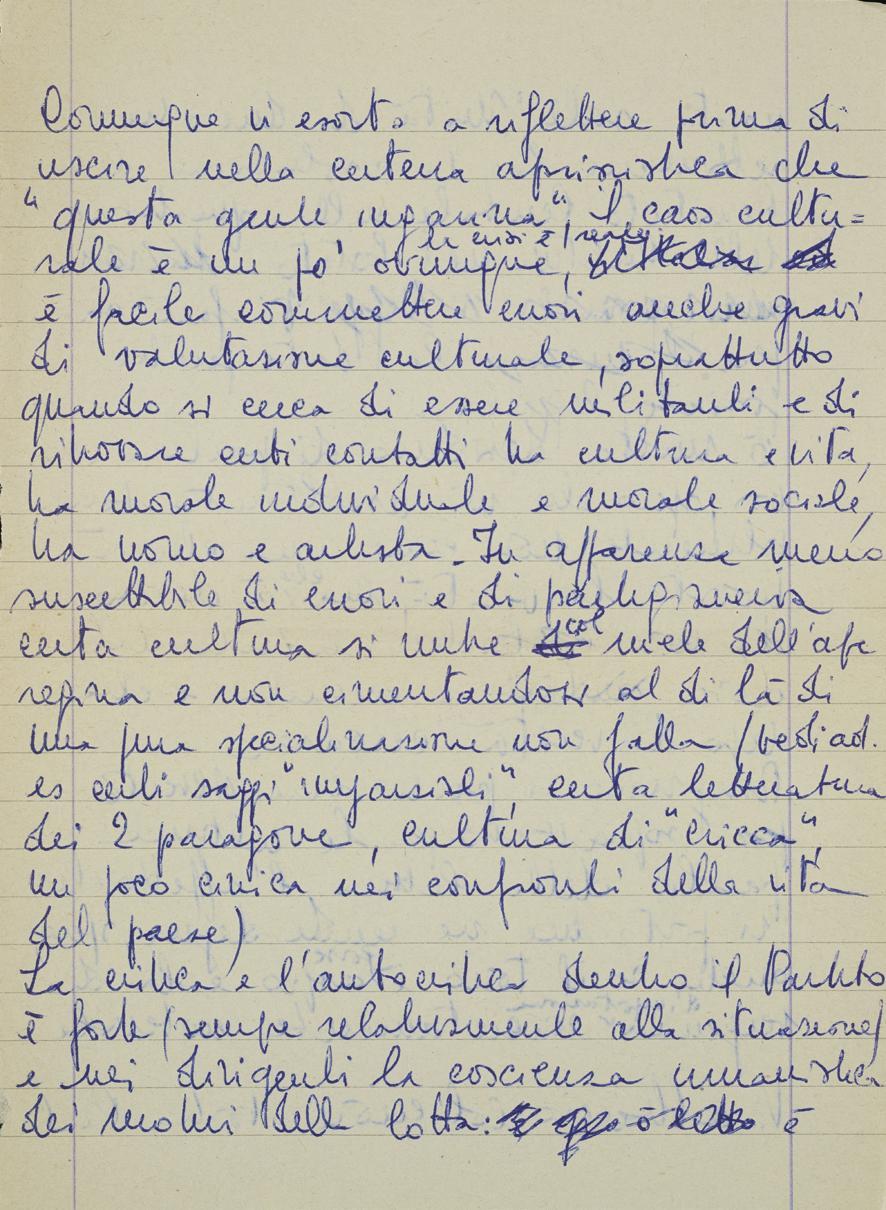 Comunque vi esorto a riflettere prima di
uscire nella certezza aprioristica che
"questa gente inganna". Il caos cultu=
rale è un pò ovunque, la crisi è
è facile commettere errori anche gravi
di valutazione culturale, soprattutto
quando si cerca di essere militanti e di
ritrovare certi contatti tra cultura e vita,
tra morale individuale e morale sociale,
tra uomo e artista. In apparenza meno
suscettibile di errori e di partigianeria
certa cultura si nutre col miele dell'ape
regina e non cimentandosi al di là di
una pura specializzazione non falla (vedi ad.
es certi saggi "imparziali", certa letteratura
dei 2 paragone, cultura di "cricca",
un poco cinica nei confronti della vita
del paese)
La critica e l'autocritica dentro il Partito
è forte (sempre relativamente alla situazione)
e nei dirigenti la coscienza umanistica
dei motivi della lotta: è